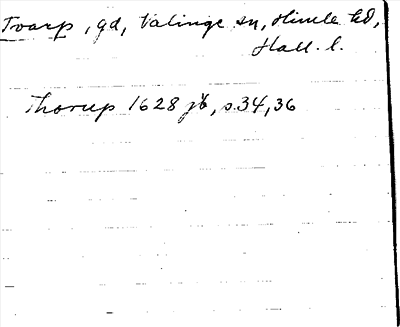 Tvarp, gd, Valinge sn, Himle hd,
Hall. l.
Thorup 1628 jb, s.34, 36